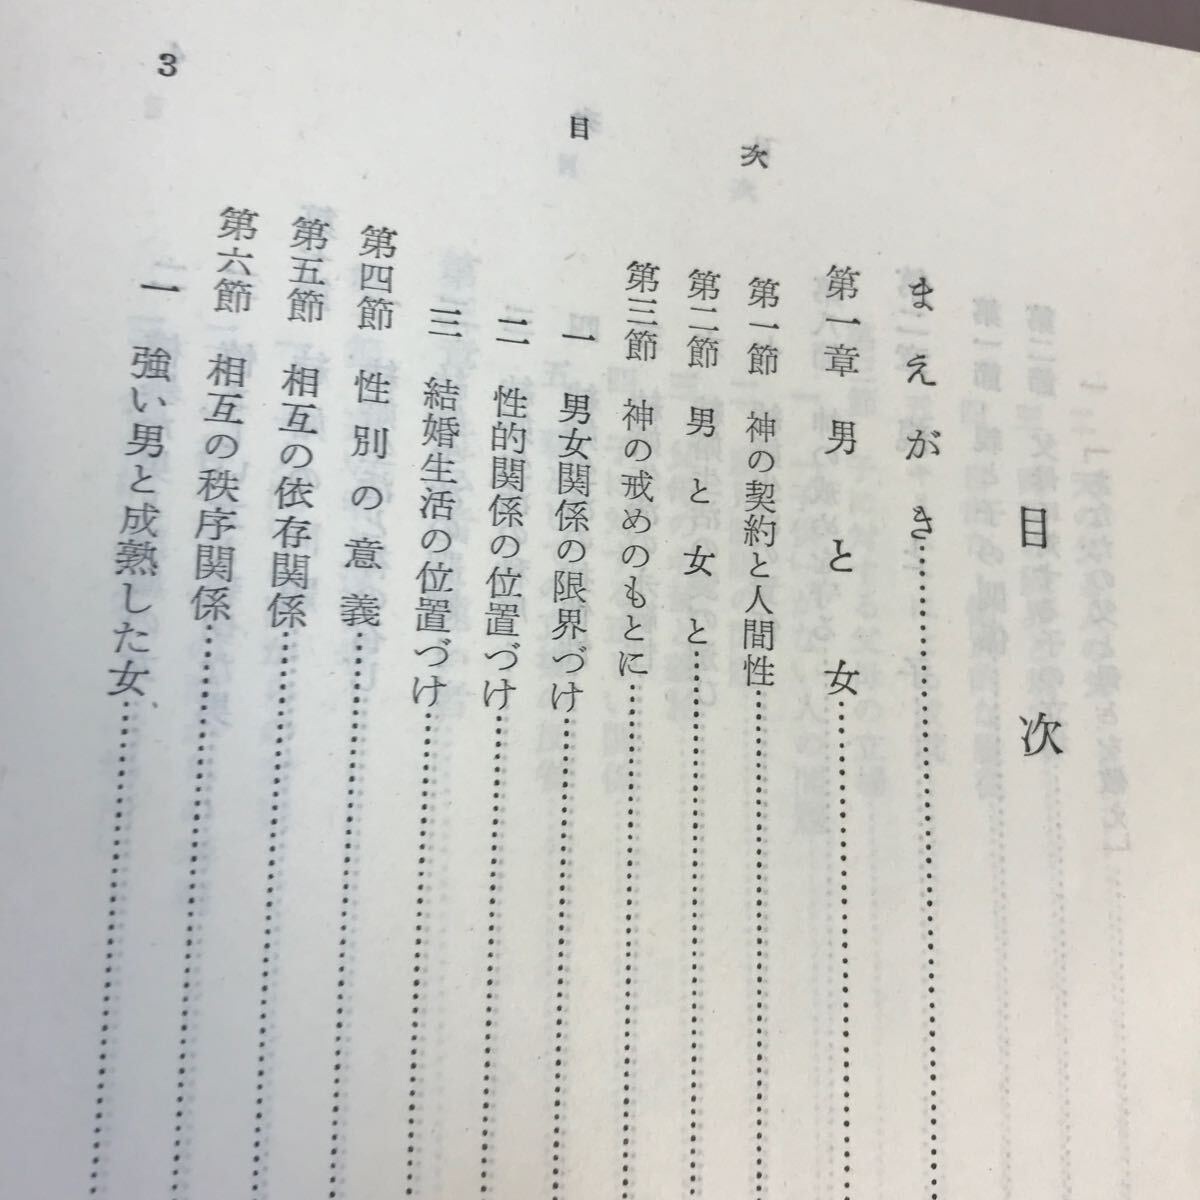 目次
まえがき……………………
第一章 男と女……………………
第一節 神の契約と人間性……………………
第二節 男と女と……………………
第三節 神の戒めのもとに……………………
一 男女関係の限界づけ……………………
二 性的関係の位置づけ……………………
三 結婚生活の位置づけ……………………
第四節 性別の意義……………………
第五節 相互の依存関係……………………
第六節 相互の秩序関係……………………
一 強い男と成熟した女……………………
目次
3